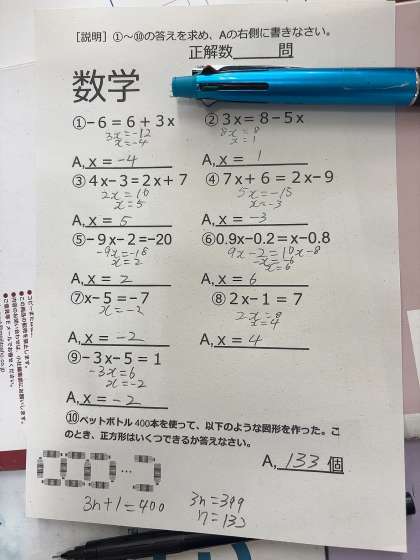 [説明] ①～⑩の答えを求め、Aの右側に書きなさい。
正解数　　問
数学
①-6=6+3x
3x=-12
x=-4
A, x = -4
② 3x=8-5x
8x=8
x=1
A, x = 1
③ 4x-3=2x+7
2x=10
x=5
A, x = 5
④ 7x+6=2x-9
5x=-15
x=-3
A, x = -3
⑤-9x-2=-20
-9x=-18
x=2
A, x = 2
⑥0.9x-0.2=x-0.8
9x-2=10x-8
-x=-6
x=6
A, x = 6
⑦x-5=-7
x=-2
A, x = -2
⑧ 2x-1=7
2x=8
x=4
A, x = 4
⑨-3x-5=1
-3x=6
x=-2
A, x = -2
⑩ペットボトル400本を使って、以下のような図形を作った。こ
のとき、正方形はいくつできるか答えなさい。
…
A, 133 個
3n+1=400
3n=399
n=133